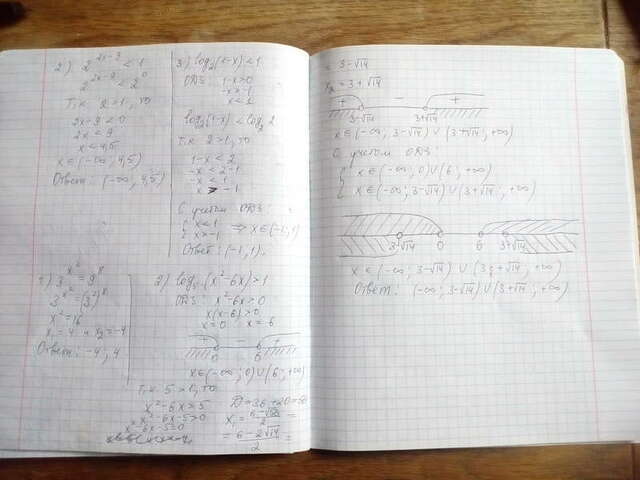 2) 2^(2x-9) < 1
2^(2x-9) < 2^0
Т.к 2>1, то
2x-9<0
2x<9
x<4,5
x∈(-∞; 4,5)
Ответ: (-∞; 4,5)
3) log₂(1-x)<1
ОДЗ: 1-x>0
-x>-1
x<1
log₂(1-x)<log₂2
Т.к 2>1, то
1-x<2
-x<2-1
-x<1
x>-1
С учетом ОДЗ:
{ x<1
{ x>-1 ⇒ x∈(-1;1)
Ответ: (-1;1).
1) 3^(x²) = 9^8
3^(x²) = (3²)^8
x²=16
x₁=4 и x₂=-4
Ответ: -4; 4
2) (x²-6x)>1
ОДЗ: x²-6x>0
x(x-6)>0
x=0 x=6
+ - +
0 6
x∈(-∞; 0)∪(6; +∞)
Т.к 5>1, то
x²-6x>5
x²-6x-5>0
x²-6x-5=0
D=36+20=56
x₁=
=(6-2√14)/2=
= 3-√14
x₂=3+√14
+ - +
3-√14 3+√14
x∈(-∞; 3-√14)∪(3+√14; +∞)
С учетом ОДЗ:
{ x∈(-∞; 0)∪(6; +∞)
{ x∈(-∞; 3-√14)∪(3+√14; +∞)
3-√14 0 6 3+√14
x∈(-∞; 3-√14)∪(3+√14; +∞)
Ответ: (-∞; 3-√14)∪(3+√14; +∞)